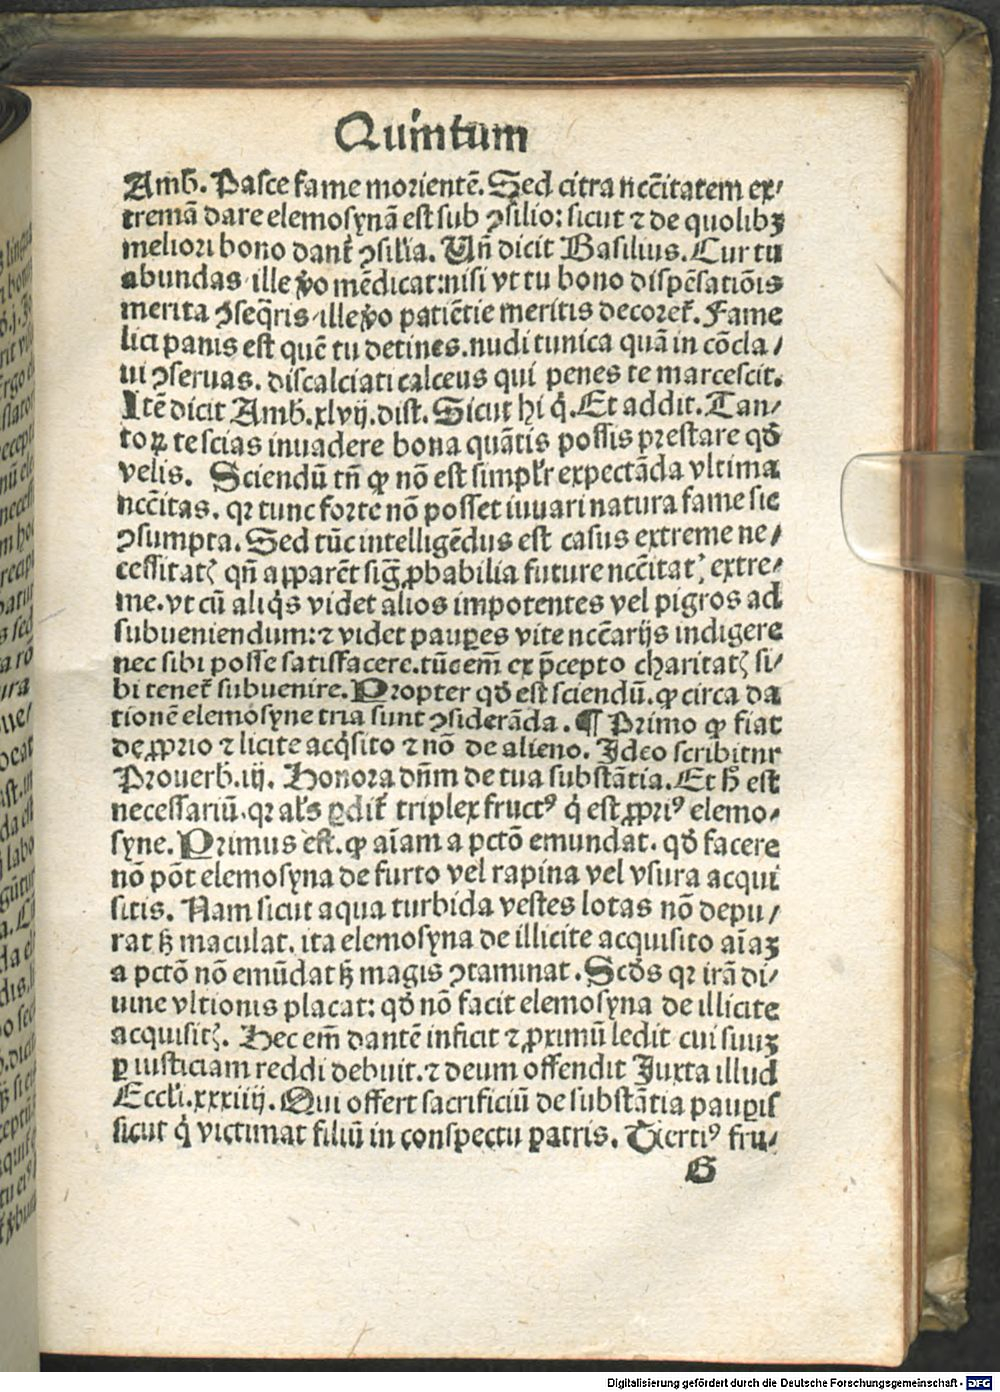 Quintum
Amb̄. Pasce fame morientē. Sed citra nccītatem ex⸗
tremā dare elemosynā est sub ꝯsilio: sicut ⁊ de quolibꝫ
meliori bono dant᷑ ꝯsilia. Un̄ dicit Basilius. Cur tu
abundas ille ꝟo mēdicat: nisi vt tu bono dispēsatiōis
merita ꝯseq̄ris ille ꝟo patiētie meritis decoret᷑. Fame
lici panis est quē tu detines. nudi tunica quā in cōcla⸗
ui ꝯseruas. discalciati calceus qui penes te marcescit.
Itē dicit Amb̄. xlvij. dist. Sicut hi q̇. Et addit. Tan⸗
toꝝ te scias inuadere bona quātis possis prestare qđ
velis. Sciendū tn̄ ꝙ nō est simpl'r expectāda vltima
nccītas. qꝛ tunc forte nō posset iuuari natura fame sic
ꝯsumpta. Sed tūc intelligēdus est casus extreme ne⸗
cessitatꝭ qn̄ apparēt siḡ ꝓbabilia future nccītatꝭ extre⸗
me. vt cū aliq̇s videt alios impotentes vel pigros ad
subueniendum: ⁊ videt paupes vite nccārijs indigere
nec sibi posse satisfacere. tūc em̄ ex p̄cepto charitatꝭ si⸗
bi tenet᷑ subuenire. Propter qđ est sciendū. ꝙ circa da
tionē elemosyne tria sunt ꝯsiderāda. ¶ Primo ꝙ fiat
de ꝓprio ⁊ licite acq̇sito ⁊ nō de alieno. Ideo scribitur
Prouerb̄. iij. Honora dn̄m de tua substātia. Et h̄ est
necessariū. qꝛ al's ꝑdit᷑ triplex fructꝰ q̇ est ꝓpriꝰ elemo⸗
syne. Primus est. ꝙ aīam a pctō emundat. qđ facere
nō pōt elemosyna de furto vel rapina vel vsura acqui
sitis. Nam sicut aqua turbida vestes lotas nō depu⸗
rat sꝫ maculat. ita elemosyna de illicite acquisito aīaꝫ
a pctō nō emūdat sꝫ magis ꝯtaminat. Scđs qꝛ irā di⸗
uine vltionis placat: qđ nō facit elemosyna de illicite
acquisitꝭ. Hec em̄ dantē inficit ⁊ ꝓximū ledit cui suuꝫ
ꝑ iusticiam reddi debuit. ⁊ deum offendit Juxta illud
Eccl'i. xxxiiij. Qui offert sacrificiū de substātia pauꝑis
sicut q̇ victimat filiū in conspectu patris. Tertiꝰ fru⸗
G
Digitalisierung gefördert durch die Deutsche Forschungsgemeinschaft - DFG